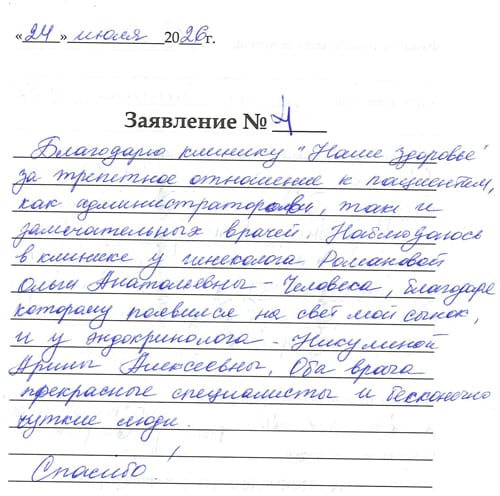 «24» июля 2026 г.
Заявление № 4
Благодарю клинику "Наше Здоровье"
за трепетное отношение к пациентам,
как администраторами, так и
замечательных врачей. Наблюдаюсь
в клинике у гинеколога Романовой
Ольги Анатольевны - Человека, благодаря
которому появился на свет мой сынок,
и у эндокринолога - Никулиной
Арины Алексеевны. Оба врача
прекрасные специалисты и бесконечно
чуткие люди.
Спасибо!